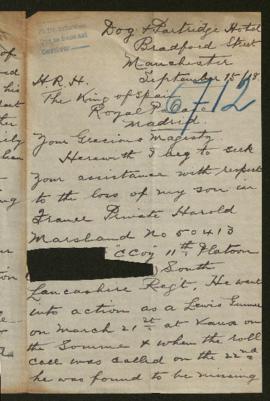 Dog & Partridge Hotel
Bradford Street
Manchester
September 15/18
H.R.H.
The King of Spain
Royal Palace
6/712
Madrid.
Your Gracious Majesty
Herewith I beg to seek
your assistance with respect
to the loss of my son in
France Private Harold
Marsland No 50413
"C Coy" 11th Platoon
South
Lancashire Regt. He went
into action as a Lewis Gunner
on March 21st at Vaux on
the Somme & when the roll
call was called on the 22nd
he was found to be missing